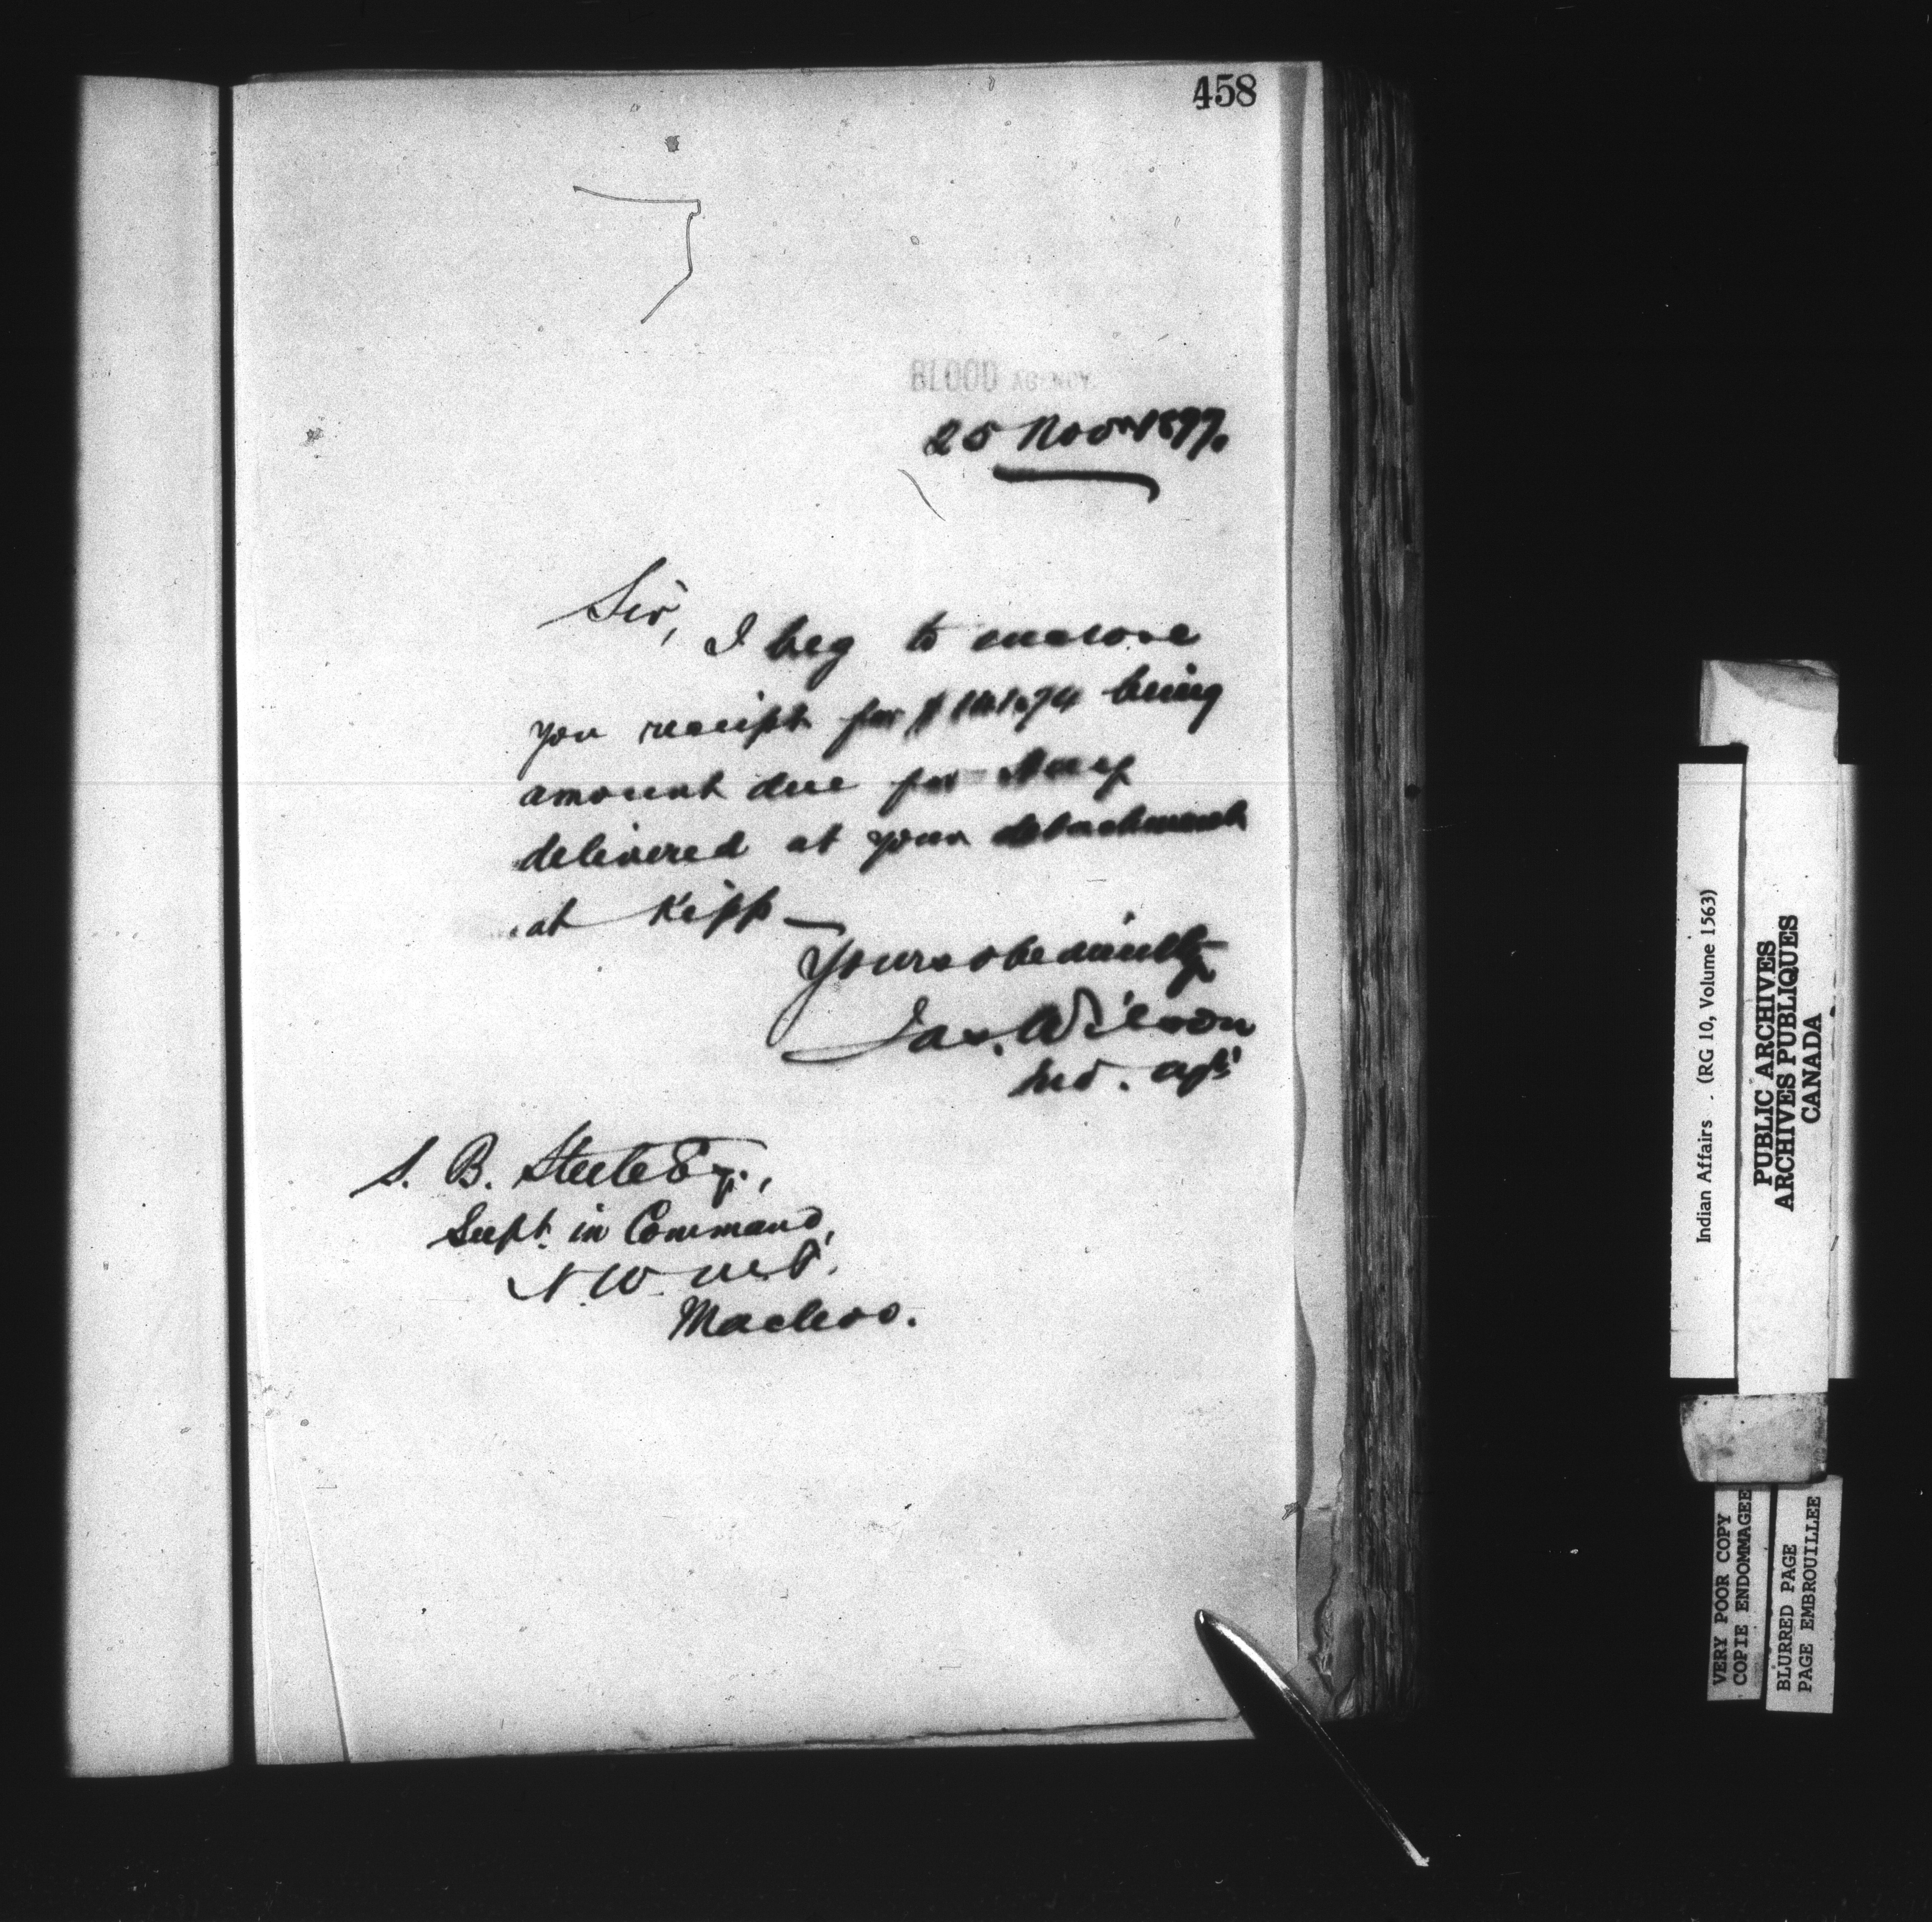 458
BLOOD AGENCY.
25 Novr 1897.
Sir,
I beg to enclose
you receipt for $ 141.74 being
amount due for Hay
delivered at your detachment
at Kipp —
Yours obediently
Jas. Wilson
Ind. Agt.
S. B. Steele Esq.,
Supt. in Command,
N. W. M. P.
Macleod.
Indian Affairs . (RG 10, Volume 1563)
PUBLIC ARCHIVES
ARCHIVES PUBLIQUES
CANADA
VERY POOR COPY
COPIE ENDOMMAGEE
BLURRED PAGE
PAGE EMBROUILLEE